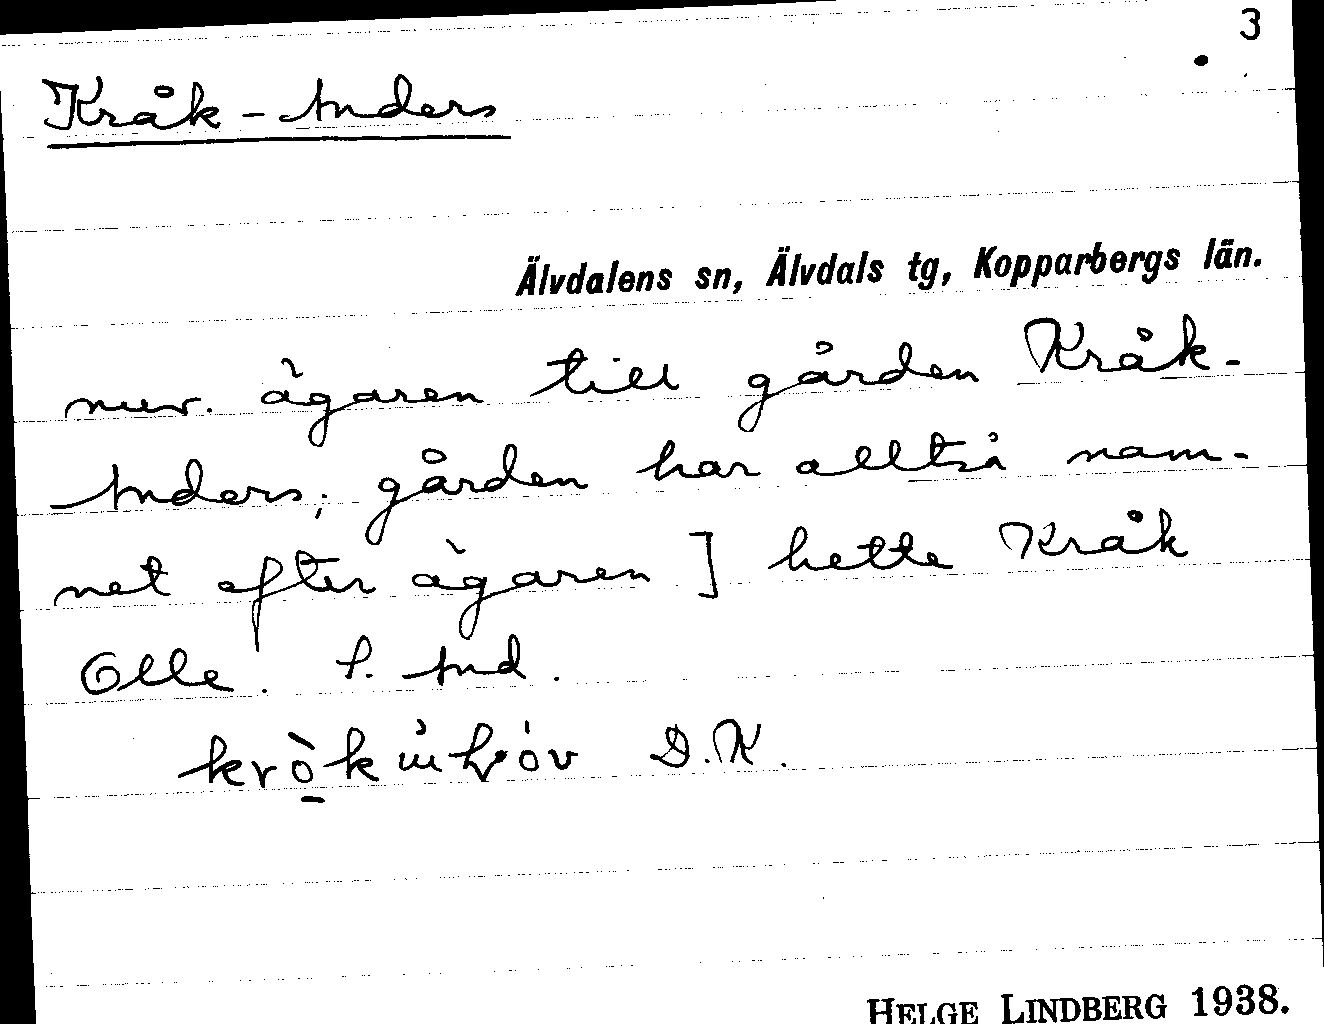 3
Kråk-Anders
Älvdalens sn, Älvdals tg, Kopparbergs län.
nuv. ägaren till gården Kråk-
Anders; gården har alltså nam-
net efter ägaren] hette Kråk
Olle. S. And.
D.K.
HELGE LINDBERG 1938.